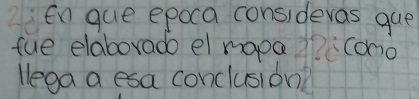 2¿En que epoca consideras que
fue elaborado el mapa 2?¿como
llega a esa conclusión?